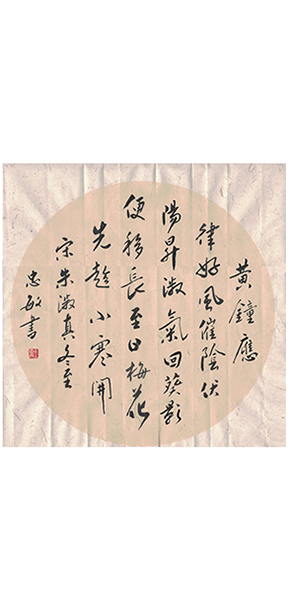 黄鐘應
律好風催陰伏
陽昇淑氣回葵影
便移長至日梅花
先趁小寒開
宋朱淑真冬至
忠敏書